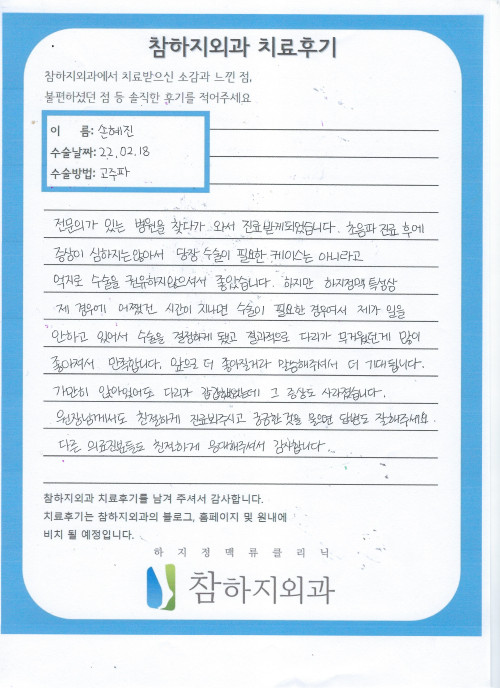 참하지외과 치료후기
참하지외과에서 치료받으신 소감과 느낀 점,
불편하셨던 점 등 솔직한 후기를 적어주세요
이 름: 손혜진
수술날짜: 22.02.18
수술방법: 고주파
전문의가 있는 병원을 찾다가 와서 진료받게되었습니다. 초음파 진료 후에
증상이 심하지는않아서 당장 수술이 필요한 케이스는 아니라고
억지로 수술을 권유하지않으셔서 좋았습니다. 하지만 하지정맥 특성상
제 경우에 어쨌건 시간이 지나면 수술이 필요한 경우여서 제가 일을
안하고 있어서 수술을 결정하게 됐고 결과적으로 다리가 무거웠던게 많이
좋아져서 만족합니다. 앞으로 더 좋아질거라 말씀해주셔서 더 기대됩니다.
가만히 앉아있어도 다리가 갑갑했었는데 그 증상도 사라졌습니다.
원장님께서도 친절하게 진료봐주시고 궁금한것을 물으면 답변도 잘해주세요.
다른 의료진분들도 친절하게 응대해주셔서 감사합니다.
참하지외과 치료후기를 남겨 주셔서 감사합니다.
치료후기는 참하지외과의 블로그, 홈페이지 및 원내에
비치 될 예정입니다.
하지정맥류클리닉
참하지외과